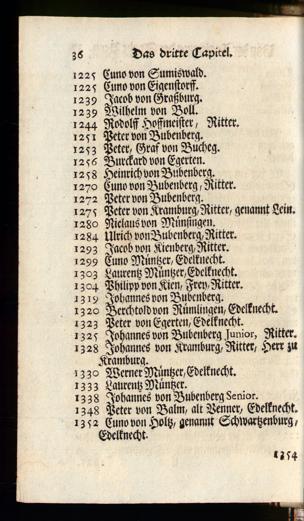 36 Das dritte Capitel.
1225 Cuno von Sumiswald.
1225 Cuno von Eigenstorff.
1239 Jacob von Graßburg.
1239 Wilhelm von Boll.
1244 Rodolff Hoffmeister, Ritter.
1251 Peter von Bubenberg.
1253 Peter, Graf von Bucheg.
1256 Burckard von Egerten.
1258 Heinrich von Bubenberg.
1270 Cuno von Bubenberg, Ritter.
1272 Peter von Bubenberg.
1275 Peter von Kramburg, Ritter, genannt Lein.
1280 Niclaus von Münsingen.
1284 Ulrich von Bubenberg, Ritter.
1293 Jacob von Kienberg, Ritter.
1299 Cuno Müntzer, Edelknecht.
1303 Laurentz Müntzer, Edelknecht.
1304 Philipp von Kien, Frey, Ritter.
1319 Johannes von Bubenberg.
1320 Berchtold von Rümlingen, Edelknecht.
1323 Peter von Egerten, Edelknecht.
1325 Johannes von Bubenberg Junior, Ritter.
1328 Johannes von Kramburg, Ritter, Herr zu
Kramburg.
1330 Werner Müntzer, Edelknecht.
1333 Laurentz Müntzer.
1338 Johannes von Bubenberg Senior.
1348 Peter von Balm, alt Venner, Edelknecht.
1352 Cuno von Holtz, genannt Schwartzenburg,
Edelknecht.
1354